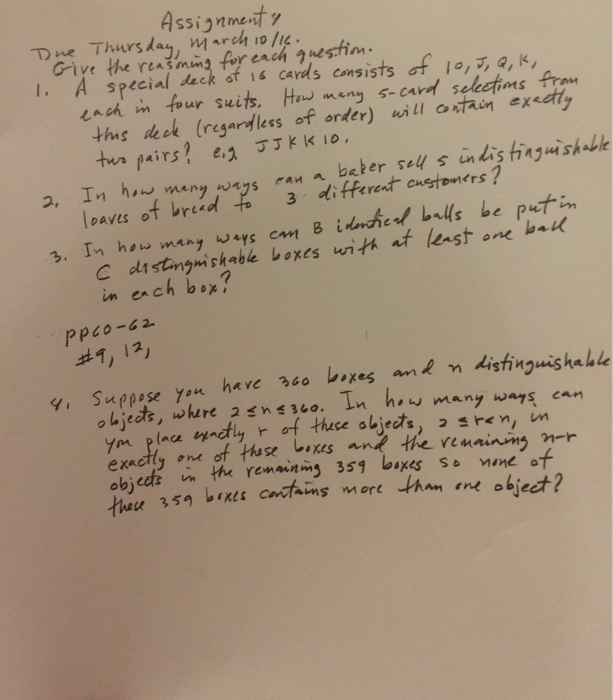 Assignment 4
Due Thursday, March 10/16.
Give the reasoning for each question.
1. A special deck of 16 cards consists of 10, J, Q, K,
each in four suits. How many 5-card selections from
this deck (regardless of order) will contain exactly
two pairs? e.g JJKK10.
2. In how many ways can a baker sell 5 indistinguishable
loaves of bread to 3 different customers?
3. In how many ways can B identical balls be put in
C distinguishable boxes with at least one ball
in each box?
pp60-62
#9, 12,
4. Suppose you have 360 boxes and n distinguishable
objects, where 2≤n≤360. In how many ways can
you place exactly r of these objects, 2≤r<n, in
exactly one of these boxes and the remaining n-r
objects in the remaining 359 boxes so none of
these 359 boxes contains more than one object?